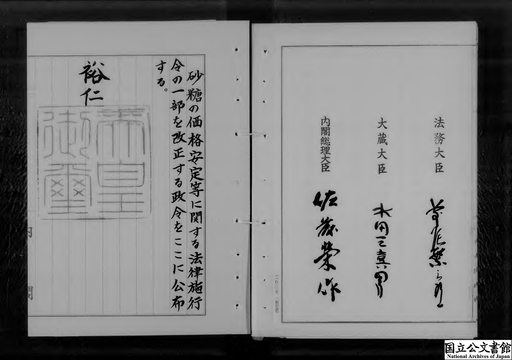 法務大臣
大蔵大臣
水田三喜男
内閣総理大臣
佐藤榮作
砂糖の価格安定等に関する法律施行
令の一部を改正する政令をここに公布
する。
裕仁
天皇
御璽
国立公文書館
National Archives of Japan